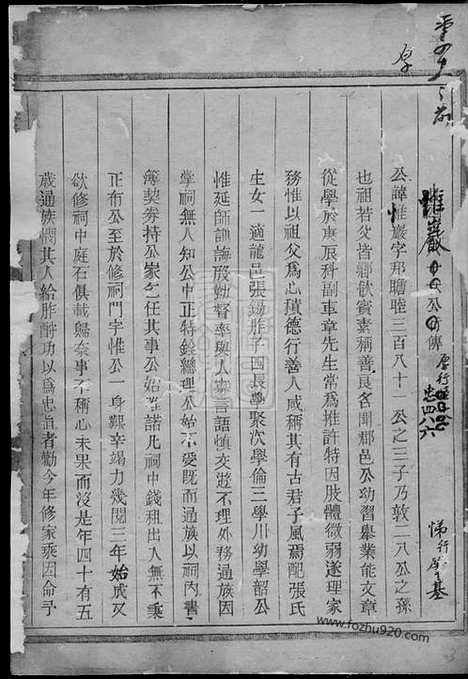 惟巖公傳
公諱惟巖字邦瞻睦三百八十一公之三子乃敦二八公之孫
也祖若父皆鄉飲賓素稱善良含聞郡邑公幼習舉業能文章
從學於庚辰科副車章先生常爲推許特因肢體微弱遂理家
務惟以祖父爲心積德行善人咸稱其有古君子風焉配張氏
生女一適龍邑張錫胙子四長學聚次學倫三學川幼學韶公
惟延師訓誨殷勤督率與人寡言語慎交遊不理外務通族因
掌祠無人知公中正特銓總理公始不受既而通族以祠內書
簿契券持公家乞任其事公始諾凡祠中錢租出入無不秉
正而公至於修祠門字惟公一身艱辛竭力幾閱三年始成又
欲修祠中庭石俱載歸奈事不稱心未果而沒是年四十有五
歲通族憫其人給胙酧功以爲忠直者勸今年修家乘因命予
www.fozhu920.com